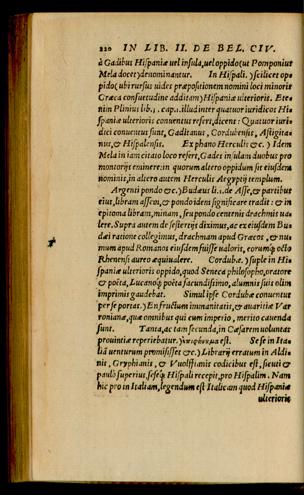 220 IN LIB. II. DE BEL. CIV.
à Gadibus Hispaniæ uel insula, uel oppido (ut Pomponius
Mela docet) denominantur. In Hispali.) scilicet op
pido (ubi rursus uides præpositionem nomini loci minoris
Græca consuetudine additam) Hispaniæ ulterioris. Ete=
nim Plinius lib. 3. cap. 1. illud inter quatuor iuridicos Hi=
spaniæ ulterioris conuentus refert, dicens: Quatuor iuri=
dici conuentus sunt, Gaditanus, Cordubensis, Astigita=
nus, & Hispalensis. Ex phano Herculis &c.) Idem
Mela in iam citato loco refert, Gades insulam duobus pro
montorijs eminere: in quorum altero oppidum sit eiusdem
nominis, in altero autem Herculis Aegyptij templum.
Argenti pondo &c.) Budæus li. 2. de Asse, & partibus
eius, libram assem, & pondo idem significare tradit: & in
epitoma libram, minam, seu pondo centenis drachmis ua=
lere. Supra autem de sestertijs diximus, ac ex eiusdem Bu=
dæi ratione collegimus, drachmam apud Græcos, & nu=
mum apud Romanos eiusdem fuisse ualoris, eorumq́; octo
Rhenensi aureo æquiualere. Cordubæ.) supple in Hi=
spaniæ ulterioris oppido, quod Seneca philosopho, oratore
& poëta, Lucanoq́; poëta facundissimo, alumnis suis olim
imprimis gaudebat. Simul ipse Cordubæ conuentus
per se portas.) En fructum inhumanitatis, & auaritiæ Var
ronianæ, quæ omnibus qui cum imperio, merito cauenda
sunt. Tanta, ac tam secunda, in Cæsarem uoluntas
prouintiæ reperiebatur.) est. Se se in Ita=
liã uenturum promisisset &c.) Librarij erratum in Aldi=
nis, Gryphianis, & Vuolffianis codicibus est, sicuti &
paulò superius, seseq́; Hispali recepit, pro Hispalim. Nam
hic pro in Italiam, legendum est Italicam quod Hispaniæ
ulterioris